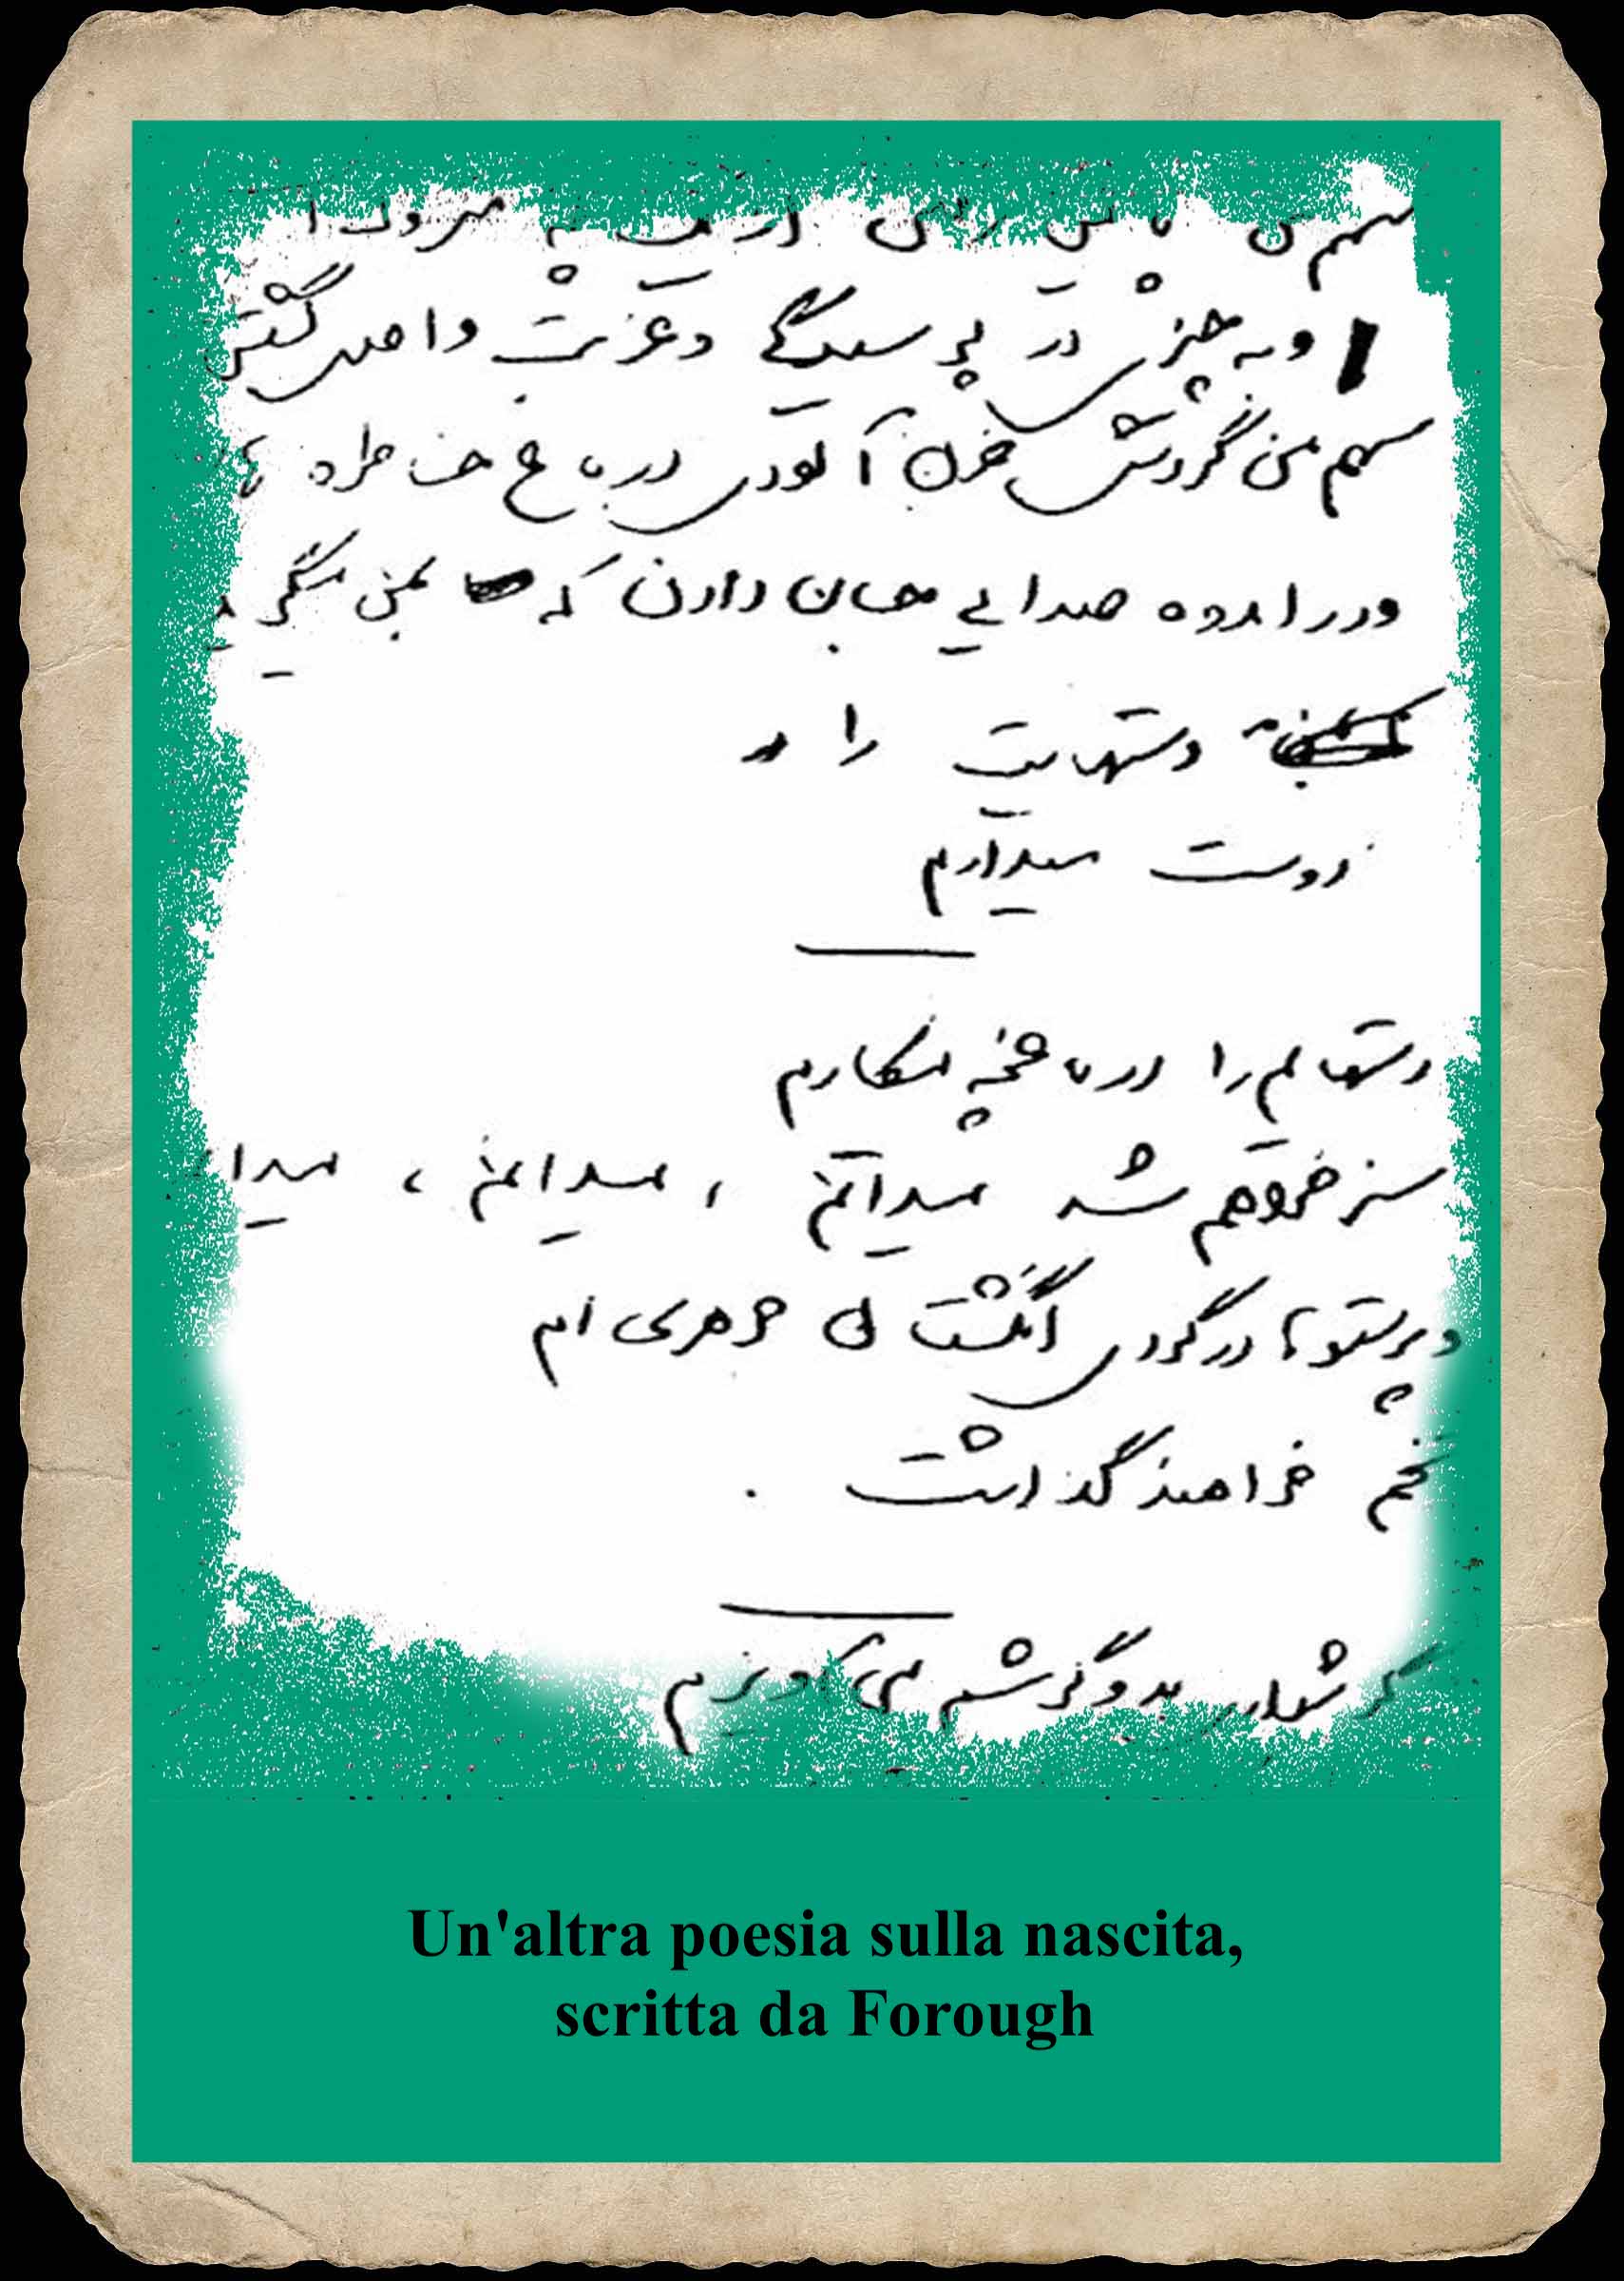 سهم من پایین رفتن از یک پله متروک
و به چیزی در پوسیدگی و غربت واصل گشتن
سهم من گردش حزن آلودی در باغ خاطره ها
و در اندوه صدایی جان دادن که بمن میگوید
دستهایت را
دوست میدارم
دستهایم را در باغچه میکارم
سبز خواهم شد میدانم ، میدانم ، میدا
و پرستوها در گودی انگشتان جوهری ام
تخم خواهند گذاشت .
گوشواری بدو گوشم می آویزم
Un'altra poesia sulla nascita,
scritta da Forough